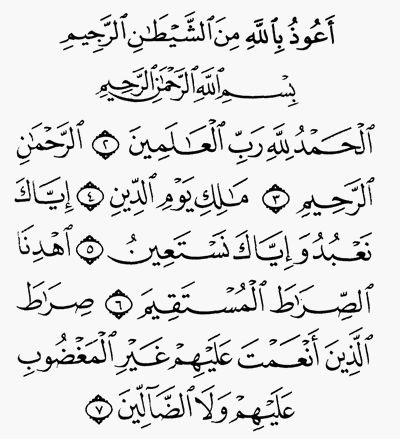 أَعُوذُ بِٱللَّهِ مِنَ ٱلشَّيْطَٰنِ ٱلرَّجِيمِ
بِسْمِ ٱللَّهِ ٱلرَّحْمَٰنِ ٱلرَّحِيمِ
ٱلْحَمْدُ لِلَّهِ رَبِّ ٱلْعَٰلَمِينَ ٢ ٱلرَّحْمَٰنِ
ٱلرَّحِيمِ ٣ مَٰلِكِ يَوْمِ ٱلدِّينِ ٤ إِيَّاكَ
نَعْبُدُ وَإِيَّاكَ نَسْتَعِينُ ٥ ٱهْدِنَا
ٱلصِّرَٰطَ ٱلْمُسْتَقِيمَ ٦ صِرَٰطَ
ٱلَّذِينَ أَنْعَمْتَ عَلَيْهِمْ غَيْرِ ٱلْمَغْضُوبِ
عَلَيْهِمْ وَلَا ٱلضَّآلِّينَ ٧